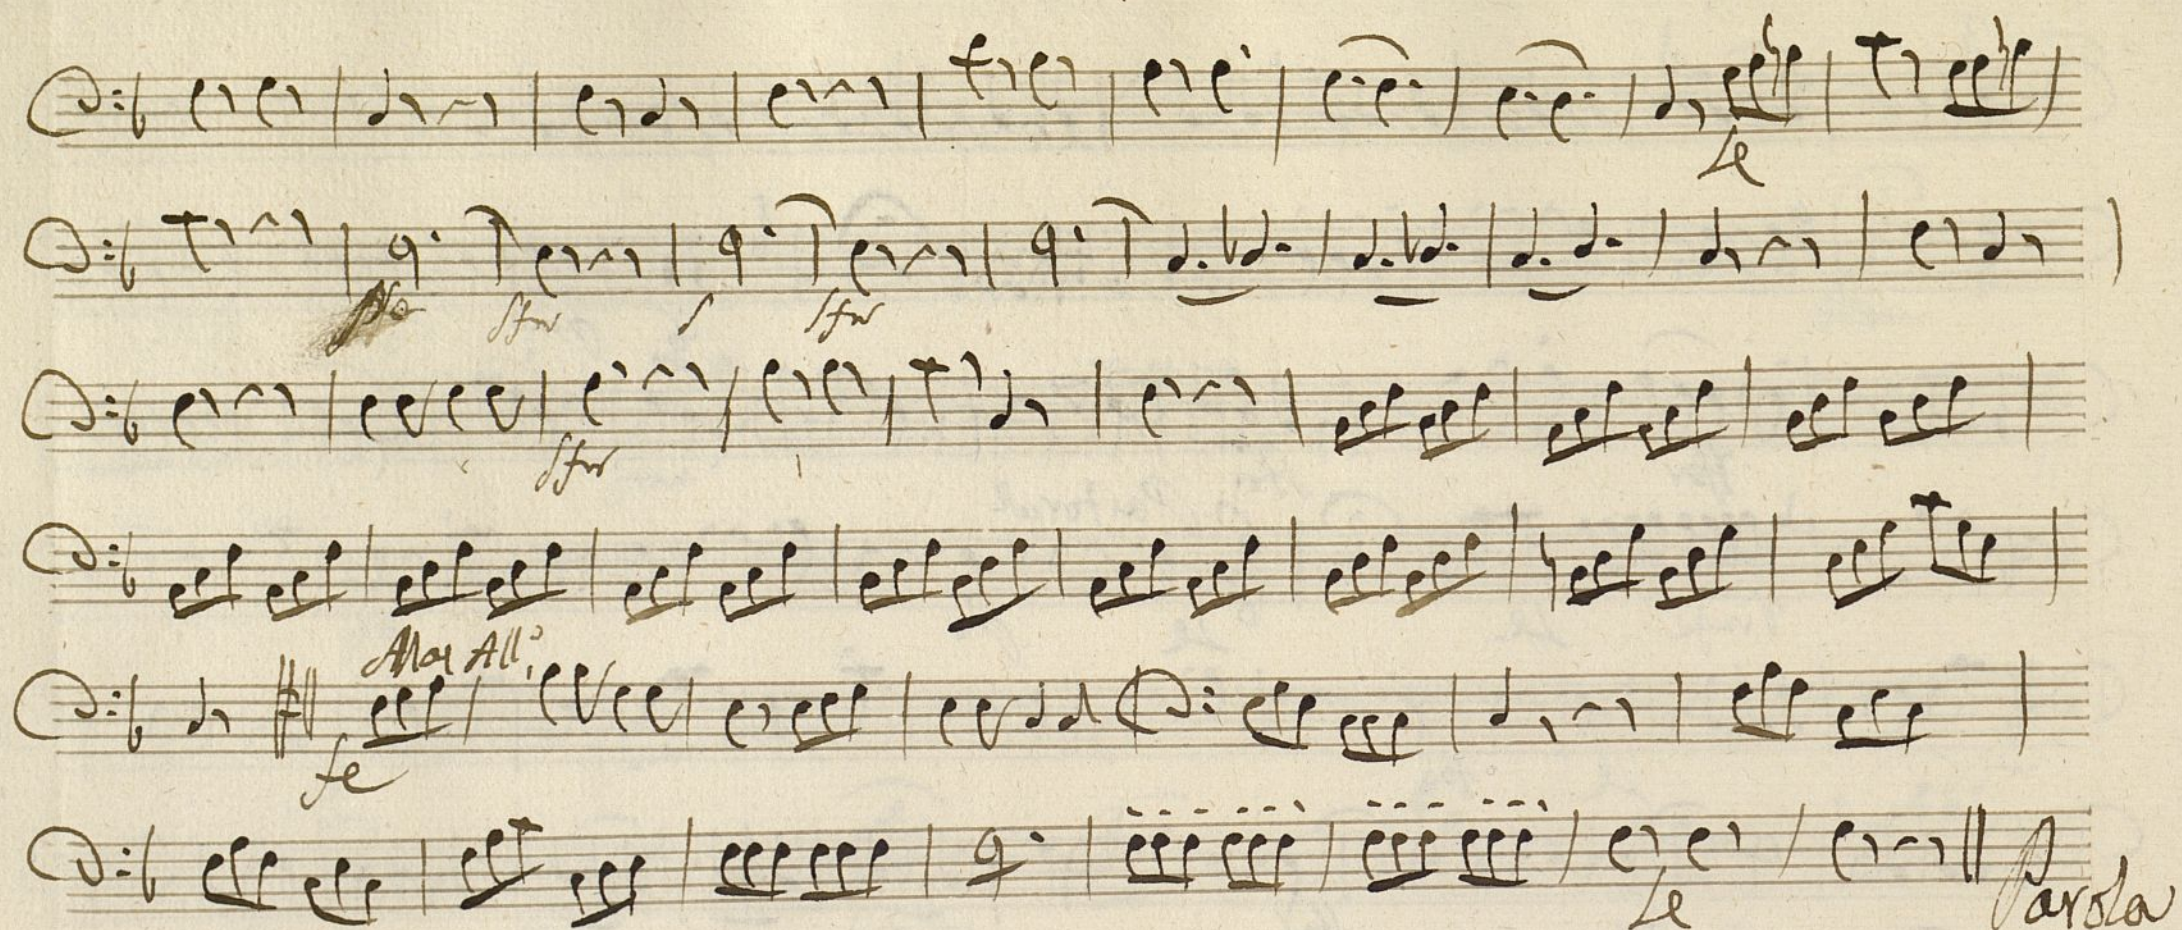 fe
sfor
f
sfor
sfor
Mas All°
fe
fe
Parola